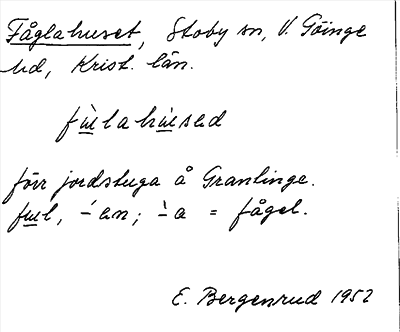 Fåglahuset, Stoby sn, V. Göinge
hd, Krist. län.
fɯ̀lahɯ́sed
förr jordstuga å Granlinge.
fɯl, –́en; –̀a = fågel.
E. Bergenrud 1952